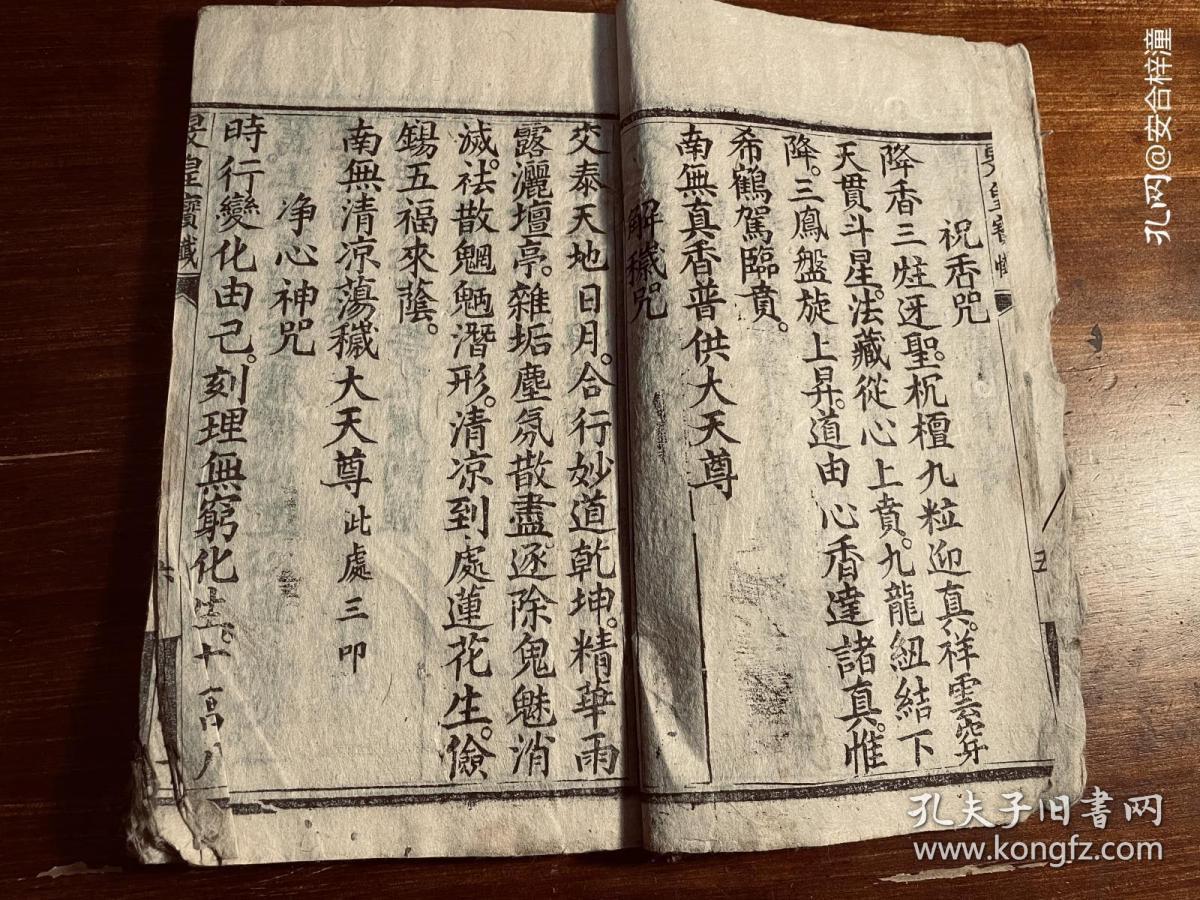 祝香咒
降香三炷迓聖。枙檀九粒迎真。祥雲穿
天貫斗星。法藏從心上賁。九龍紐結下
降。三鳳盤旋上昇。道由心香達諸真。惟
希鶴駕臨賁。
南無真香普供大天尊
解穢咒
交泰天地日月。合行妙道乾坤。精華雨
露灑壇亭。雜垢塵氛散盡。逐除鬼魅消
滅。祛散魍魎潛形。清凉到處蓮花生。儉
錫五福來蔭。
南無清凉蕩穢大天尊 此處三叩
净心神咒
時行變化由己。刻理無窮化生。十
皇寶懺
皇寶
五
孔网@安合梓潼
孔夫子旧书网
www.kongfz.com